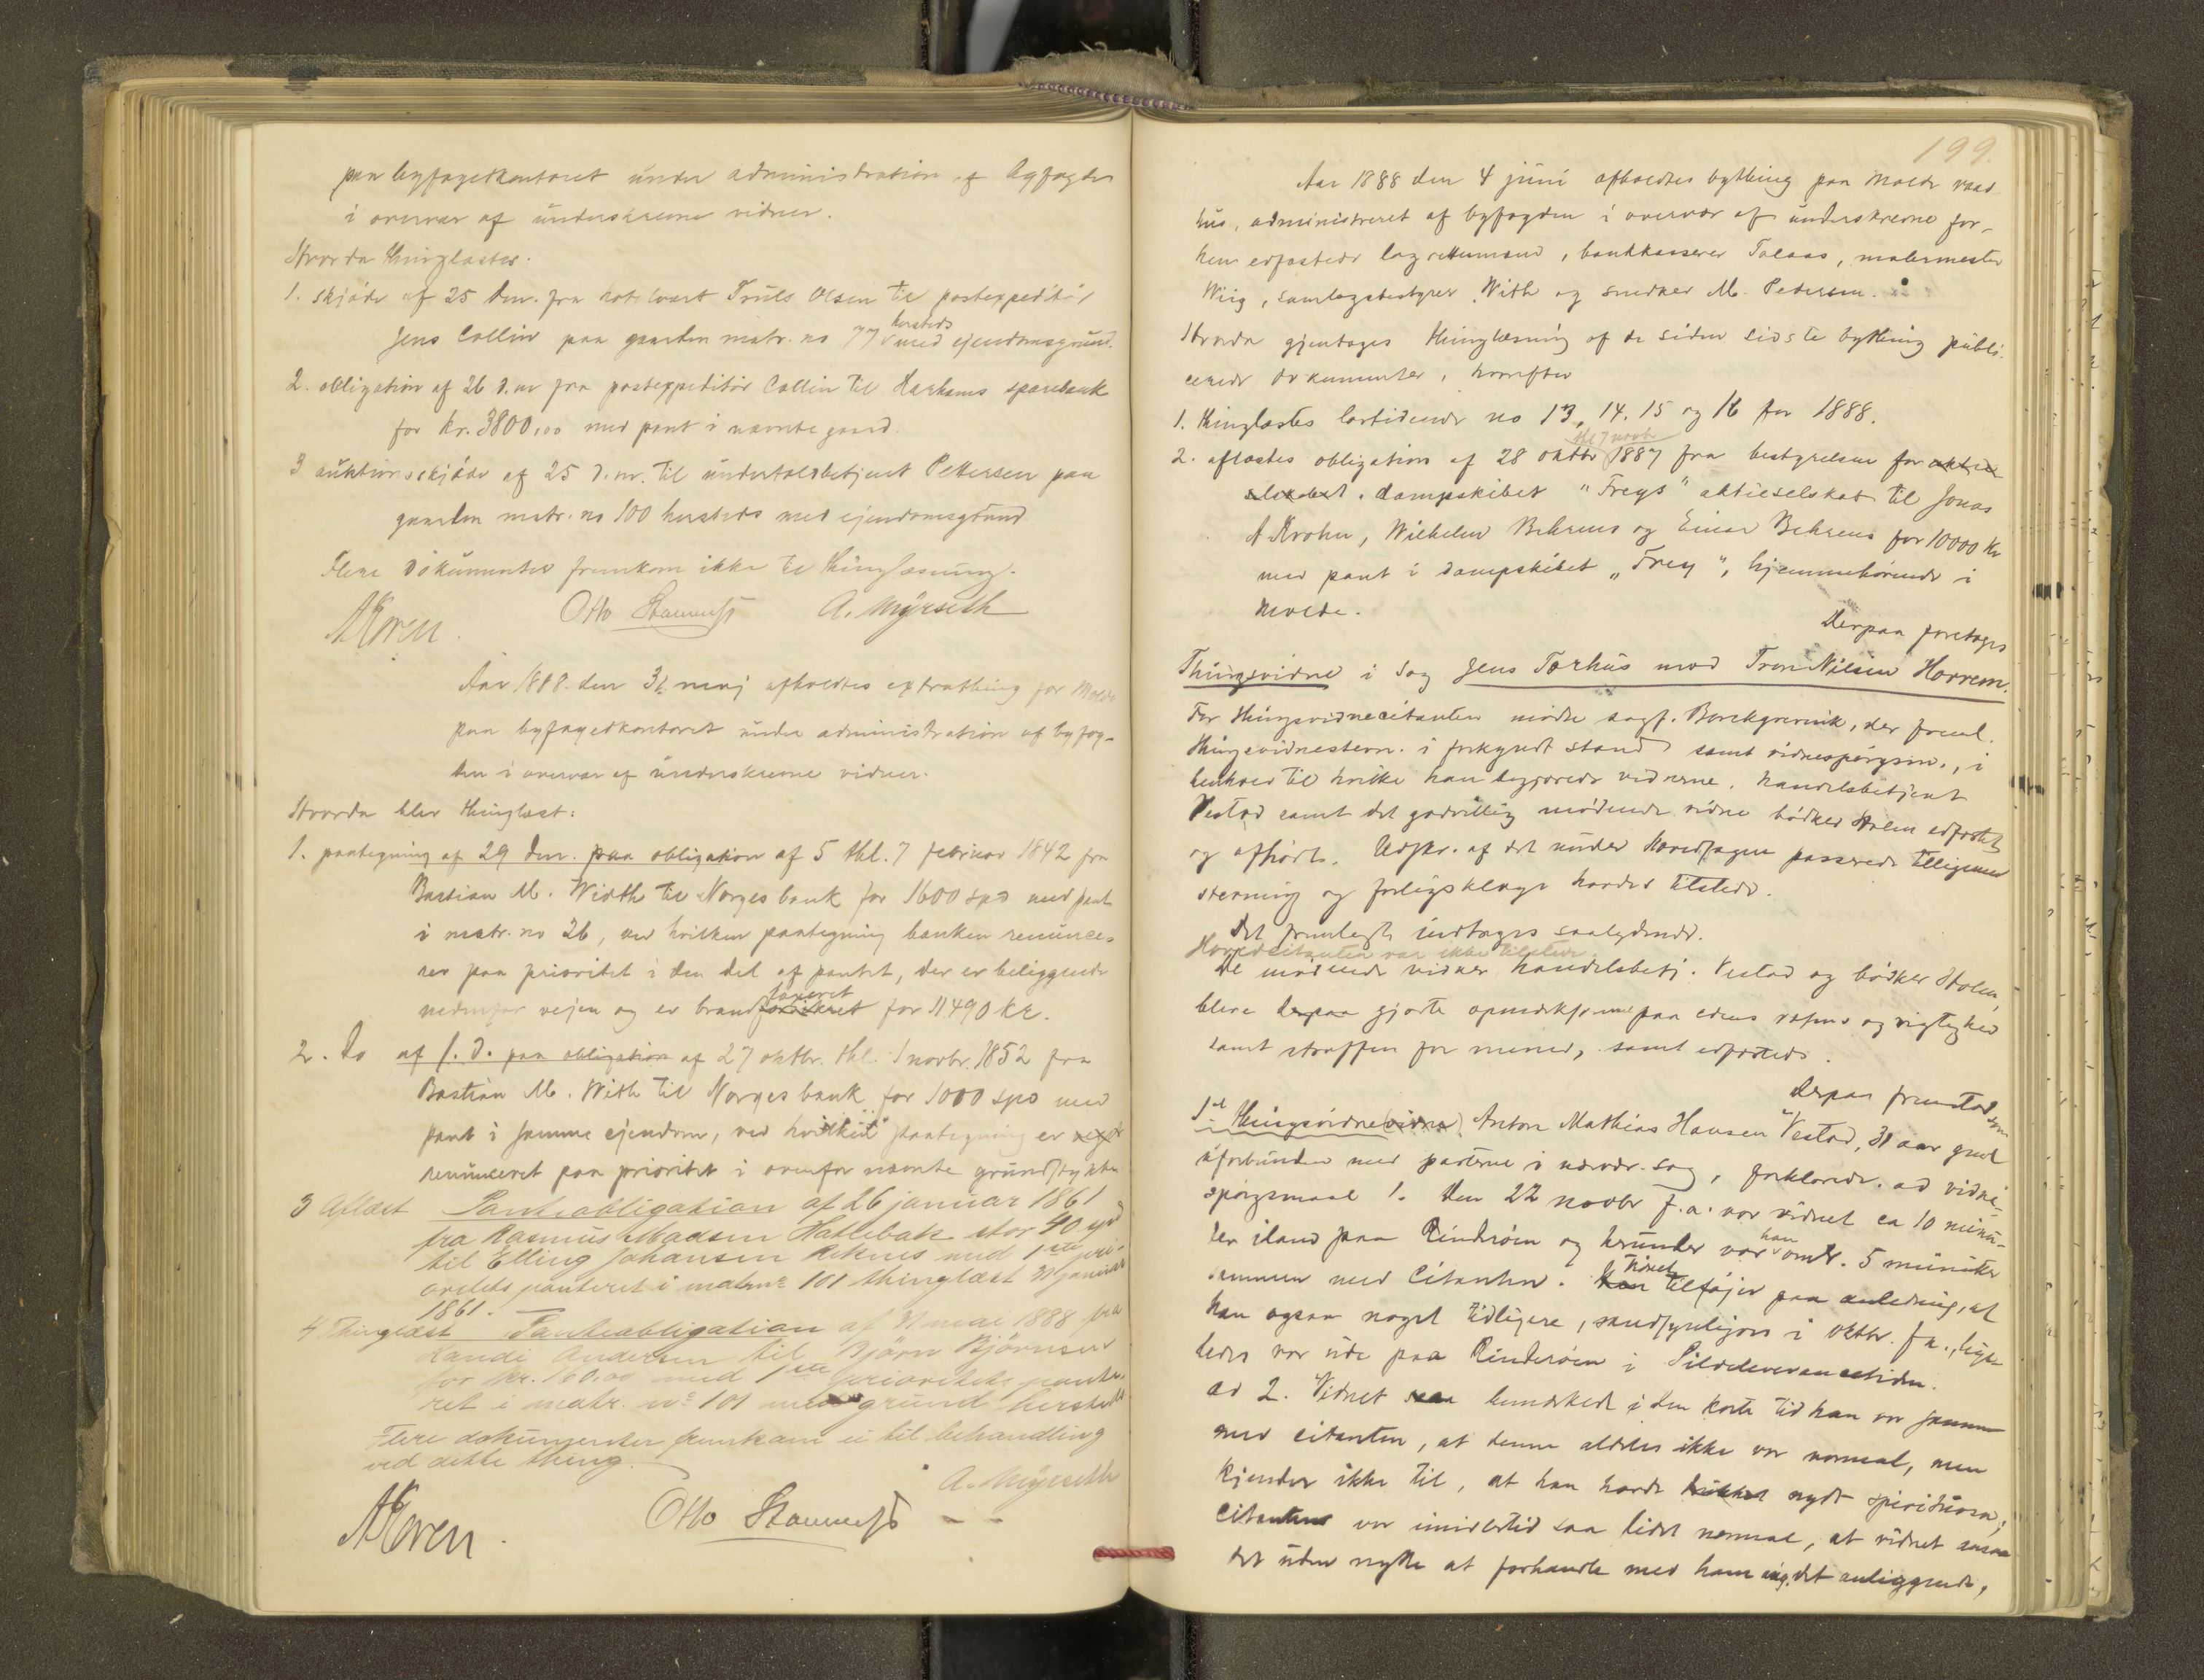 paa byfogedkontoret under administration af byfogden
i overvær af underskrevne vidner.
Hvorda thinglæstes:
1. skjöde af 25 dm. fra hotelvært Truls Olsen til postexpeditör
Jens Collin paa gaarden matr. no 77 hersteds med ejendomsgrund.
2. obligation af 26 d. m fra postexpeditör Collin til Harhams sparebank
for kr. 3800,00 med pant i nævnte gaard.
3 auktionsskjöde af 25 d. m. til undertoldbetjent Pettersen paa
gaarden matr. no 100 hersteds med ejendomsgrund.
Flere dokumenter fremkom ikke til thinglæsning.
AKoren. Otto A. Myrseth
Aar 1888. den 31 maj afholdtes extrathing for Molde
paa byfogedkontoret under administration af byfog-
den i overvær af underskrevne vidner.
Hvorda blev thinglæst:
1. paategning af 29 dm. paa obligation af 5 thl. 7 februar 1842 fra
Bastian M. Width til Norges bank for 1600 spd med pant
i matr. no 26, ved hvilken paategning banken renunce-
rer paa prioritet i den del af pantet, der er beliggende
nedenfor vejen og er brandforsikret taxeret for 11490 kr.
2. Do af s. d. paa obligation af 27 oktbr. thl. 1 novbr. 1852 fra
Bastian M. With til Norges bank for 1000 spd med
pant i samme ejendom, ved hvilken paategning er
renunceret paa prioritet i ovenfor nævnte grundstykke
3 Aflæst Panteobligation af 26 januar 1861
fra Rasmus Madsen Hatlebak stor 40 spd
til Elling Johansen Reknes med 1ste pri-
oritets panteret i matrno 101 thinglæst 31 januar
1861.
4 Thinglæst Panteobligation af 31 mai 1888 fra
Randi Andersen til Björn Björnsen
for kr. 160.00 med 1ste prioritets pante-
ret i matr. no 101 med grund hersteds
Flere dokumenter fremkom ei til behandling
ved dette thing.
A. Myrseth
AKoren. Otto
199.
Aar 1888 den 4 juni afholdtes bything paa Molde raad-
hus, administreret af byfogden i overvær af underskrevne for-
hen edfæstede lagrettemænd, bankkasserer Talaas, malermester
Wiig, samlagsbestyrer With og snedker M. Pedersen.
Hvorda gjentages thinglæsning af de siden sidste bything publi-
cerede dokumenter, hvorefter
1. thinglæstes lovtidende no 13, 14. 15 og 16 for 1888.
2. aflæstes obligation af 28 oktbr thl 7 novbr 1887 fra bestyrelsen for aktie
selskabet. dampskibet "Freys" aktieselskab til Jonas
A Krohn, Wilhelm Behrens og Einar Behrens for 10000 kr
med pant i dampskibet "Frey", hjemmehörende i
Molde.
Derpaa foretoges
Thingsvidne i sag Jens Torhus mod Tron Nilsen Horrem.
For thingsvidnecitanten mödte sagf. Borchgrevink, der freml.
thingsvidnestevn. i forkyndt stand samt vidnespörgsm., i
henhold til hvilke han begjærede vidnerne, handelsbetjent
Vestad samt det godvillig mödende vidne bödker Stolen edfæstet
og afhört. Udskr. af det under hovedsagen passerede tilligemed
stevning og forligsklage havdes tilstede.
Det fremlagte indtages saalydende.
Hovedcitanten var ikke tilstede.
De mödende vidner handelsbetj. Vestad og bödker Stolen,
bleve derpaa gjorte opmærksomme paa edens og vigtighed
samt straffen for mened, samt edfæstede.
Derpaa fremstod som
1st thingsvidne (vidne) Anton Mathias Hansen Vestad, 31 aar gml
uforbunden med parterne i nærvær. sag, forklarede. ad vidne-
spörgsmaal 1. Den 22 novbr f. a. var vidnet ca 10 minu-
ter iland paa Rindröen og herunder var han omtr. 5 minuter
sammen med Citanten. Han Vidnet tilföjer paa anledning, at
han ogsaa noget tidligere, sandsynligvis i oktbr. f a., lige-
ledes var ude paa Rinderöen i Sildeleverancetiden.
ad 2. Vidnet saa bemærkede i den korte tid han var sammen
med citanten, at denne aldeles ikke var normal, men
kjender ikke til, at han havde drukket nydt spirituosa;
Citanten var imidlertid saa lidet normal, at vidnet ansaa
det uden nytte at forhandle med ham ang. det anliggende,